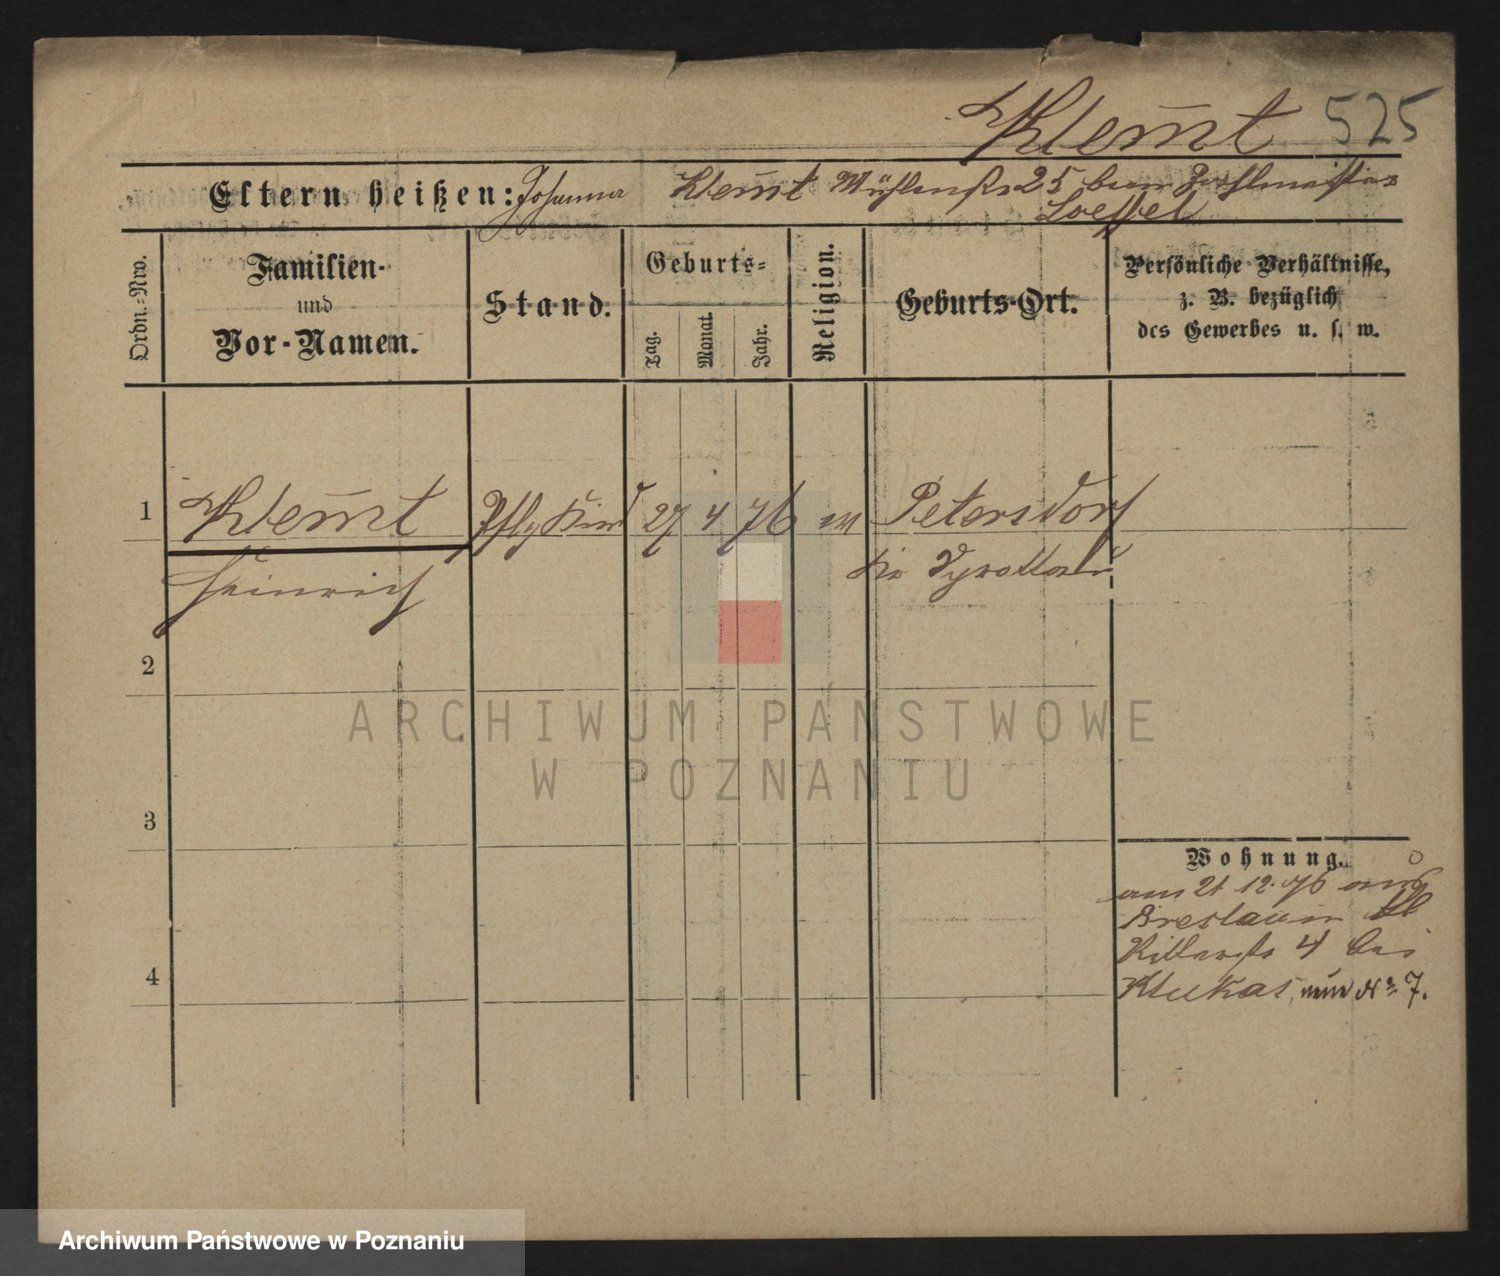 Klem̄t 525
Eltern heißen: Johanna Klem̄t Mühlenstr 25 beim Zahlmeister
Loeffel
Ordn.-Nro.
Familien-
und
Vor-Namen.
Stand.
Geburts-
Tag.
Monat.
Jahr.
Religion.
Geburts-Ort.
Persönliche Verhältnisse,
z. B. bezüglich
des Gewerbes u. s. w.
1 Klem̄t Pflg Kind 27 4 76 Petersdorf
Heinrich
2
3
4
Wohnung.
am 21 12. 76 aus
Breslau in Kl
Ritterstr 4 bei
Klukas, nun No 7.
ARCHIWUM PAŃSTWOWE
W POZNANIU
Archiwum Państwowe w Poznaniu